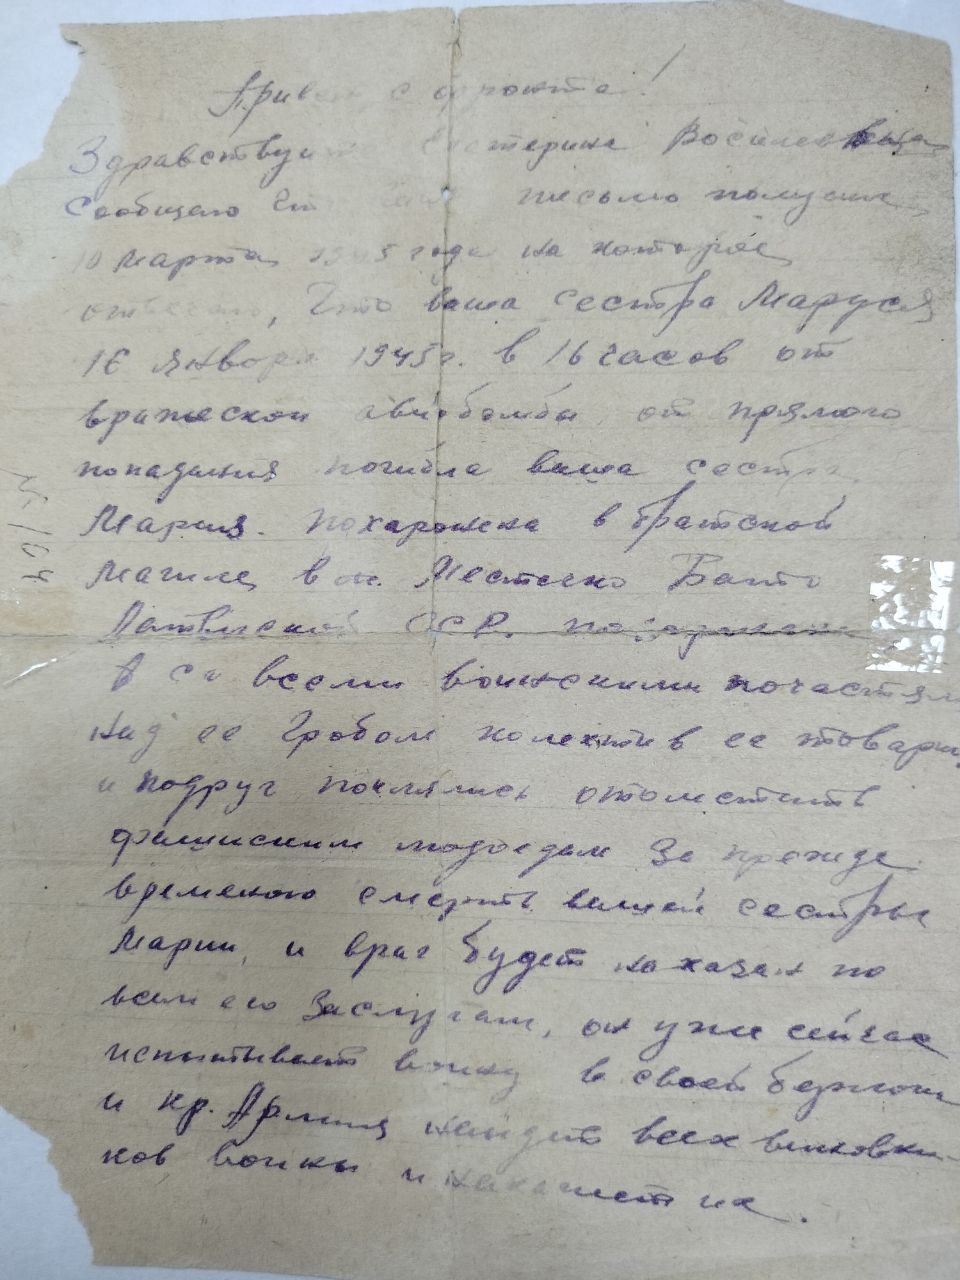 Привет с фронта!
Здравствуйте Екатерина Васильевна
Сообщаю что ваше письмо получил
10 марта 1945 года на которое
отвечаю, Что ваша сестра Маруся
16 января 1945 г. в 16 часов от
вражеской авиабомбы от прямого
попадания погибла ваша сестра
Мария. похаронена в братской
магиле, в Местечко Бакто
Латвиской ССР.
со всеми воинскими почастями
над ее гробом колектив ее товарищ
и подруг поклялись отомстить
фашиским людоедам за прежде
временою смерть вашей сестры
Марии, и враг будет наказан по
всем его заслугам, он уже сейчас
испытывает войну в своей берлоги
и кр. Армия найдет всех виновни-
ков войны и накажет их.
№ 1014